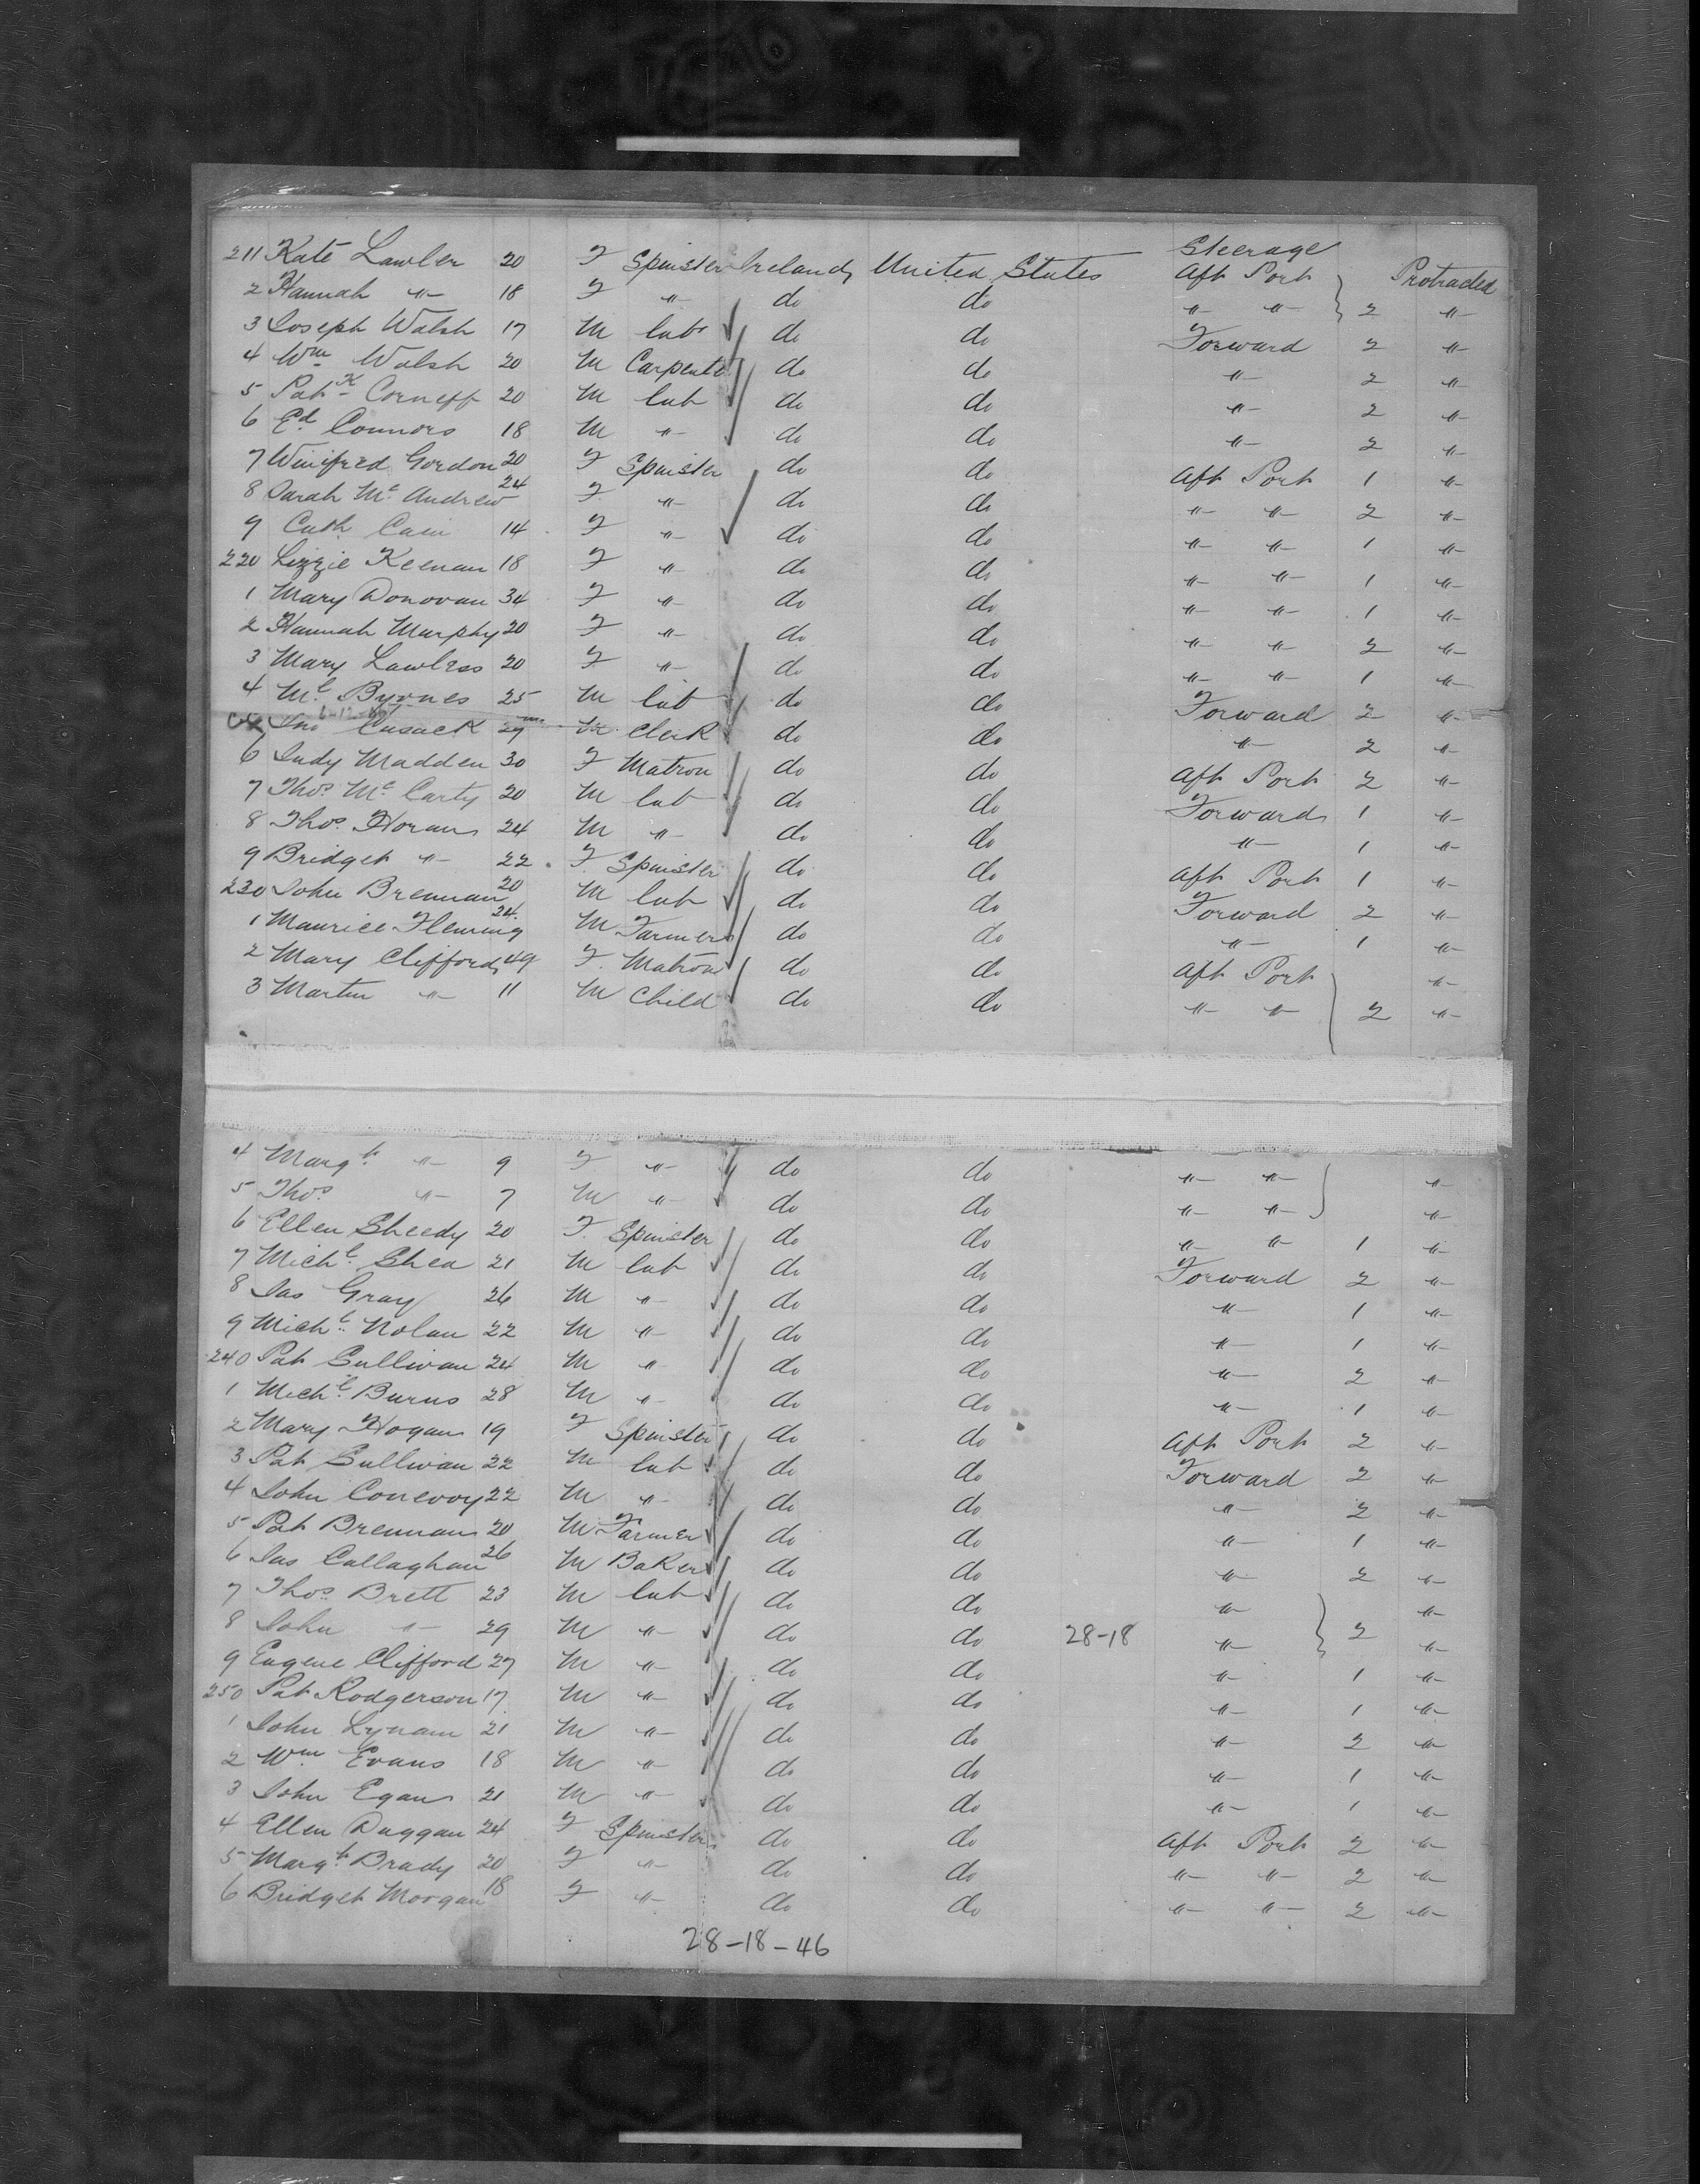 Steerage
211 Kate Lawler 20 F Spinster Ireland United States Aft Port Protracted
2 Hannah " 18 F " do do " " 2 "
3 Joseph Walsh 17 M lab do do Forward 2 "
4 Wm Walsh 20 M Carpenter do do " 2 "
5 Patk 20 M lab do do " 2 "
6 Ed Connors 18 M " do do " 2 "
7 Winifred Gordon 20 F Spinster do do Aft Port 1 "
8 Sarah Mc Andrew 24 F " do do " " 2 "
9 Cath Cain 14 F " do do " " 1 "
220 Lizzie Keenan 18 F " do do " " 1 "
1 Mary Donovan 34 F " do do " " 1 "
2 Hannah Murphy 20 F " do do " " 2 "
3 Mary Lawless 20 F " do do " " 1 "
4 Ml Byrnes 25 M lab do do Forward 2 "
Jno Cusack 29 M Clerk do do " 2 "
6 Judy Madden 30 F Matron do do Aft Port 2 "
7 Thos Mc Carty 20 M lab do do Forward 1 "
8 Thos Horan 24 M " do do " 1 "
9 Bridget " 22 F Spinster do do Aft Port 1 "
230 John Brennan 20 M lab do do Forward 2 "
1 Maurice Fleming 24 M Farmer do do " 1 "
2 Mary Clifford 49 F Matron do do Aft Port "
3 Martin " 11 M Child do do " " 2 "
4 Margt " 9 F " do do " " "
5 Thos " 7 M " do do " " "
6 Ellen Sheedy 20 F Spinster do do " " 1 "
7 Michl Shea 21 M lab do do Forward 2 "
8 Jas Gray 26 M " do do " 1 "
9 Michl Nolan 22 M " do do " 1 "
240 Pat Sullivan 24 M " do do " 2 "
1 Michl Burns 28 M " do do " 1 "
2 Mary Hogan 19 F Spinster do do Aft Port 2 "
3 Pat Sullivan 22 M lab do do Forward 2 "
4 John Conevoy 22 M " do do " 2 "
5 Pat Brennan 20 M Farmer do do " 1 "
6 Jas Callaghan 26 M Baker do do " 2 "
7 Thos Brett 23 M lab do do " "
8 John " 29 M " do do 28-18 " 2 "
9 Eugene Clifford 27 M " do do " 1 "
250 Pat Rodgerson 17 M " do do " 1 "
1 John Lynam 21 M " do do " 2 "
2 Wm Evans 18 M " do do " 1 "
3 John Egan 21 M " do do " 1 "
4 Ellen Duggan 24 F Spinster do do Aft Port 2 "
5 Margt Brady 20 F " do do " " 2 "
6 Bridget Morgan 18 F " do do " " 2 "
28-18-46